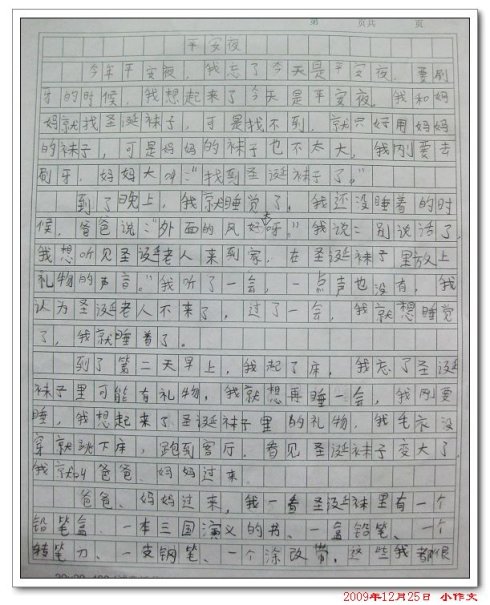 第 页共 页
平安夜
今年平安夜，我忘了今天是平安夜，要刷
牙的时候，我想起来了今天是平安夜。我和妈
妈就找圣诞袜子，可是找不到，就只好用妈妈
的袜子，可是妈妈的袜子也不太大。我刚要去
刷牙，妈妈大叫："找到圣诞袜子了。"
到了晚上，我就睡觉了，我还没睡着的时
候，爸爸说："外面的风好大呀。"我说：别说话了，
我想听见圣诞老人来到家，在圣诞袜子里放上
礼物的声音。"我听了一会，一点声也没有，我
认为圣诞老人不来了，过了一会，我就想睡觉
了，我就睡着了。
到了第二天早上，我起了床，我忘了圣诞
袜子里可能有礼物，我就想再睡一会，我刚要
睡，我想起来了圣诞袜子里的礼物，我毛衣没
穿就跳下床，跑到客厅，看见圣诞袜子变大了，
我就叫爸爸、妈妈过来。
爸爸、妈妈过来，我一看圣诞袜里有一个
铅笔盒、一本三国演义的书、一盒铅笔、一个
转笔刀、一支钢笔、一个涂改带，这些我都很
2009年12月25日 小作文